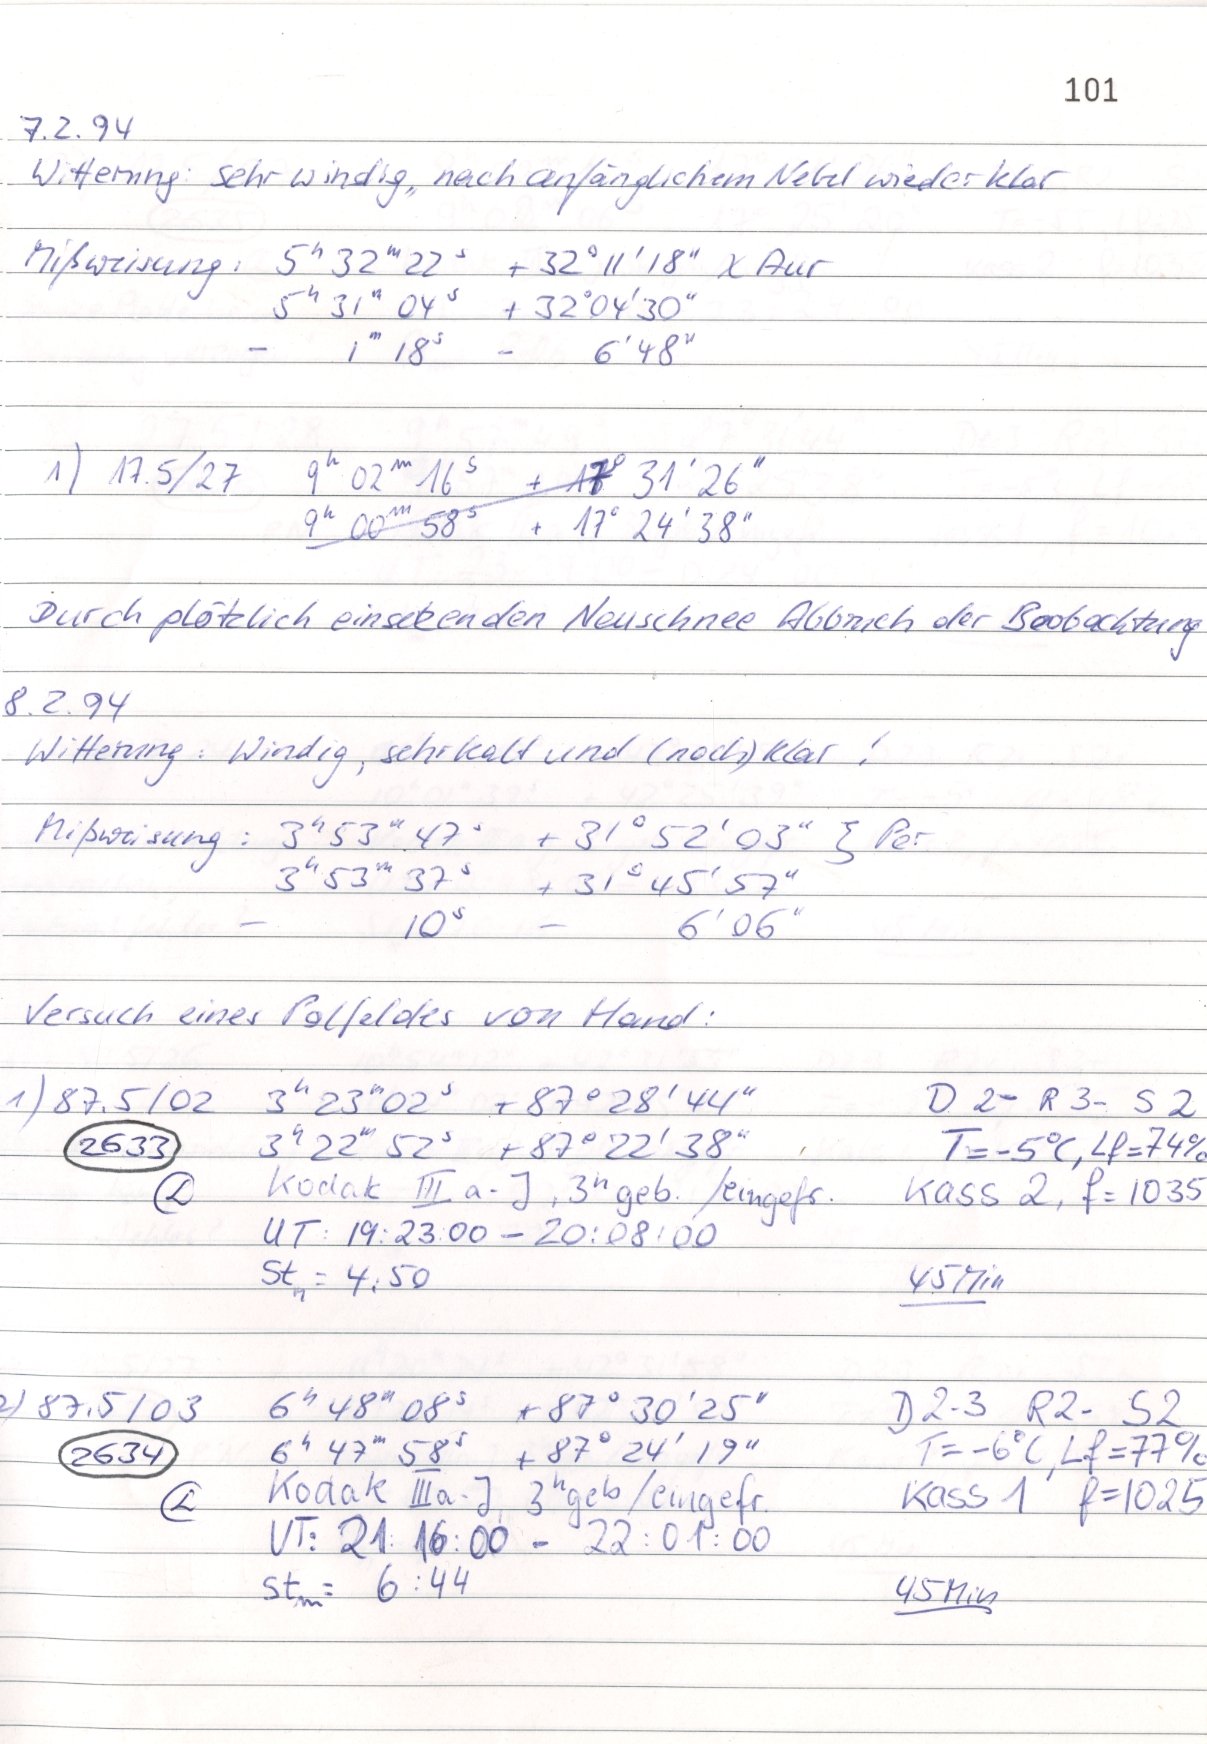 101
7.2.94
Witterung: sehr windig, nach anfänglichem Nebel wieder klar
Mißweisung: 5ʰ 32ᵐ 22ˢ + 32° 11' 18" χ Aur
5ʰ 31ᵐ 04ˢ + 32° 04' 30"
- 1ᵐ 18ˢ - 6' 48"
1) 17.5/27 9ʰ 02ᵐ 16ˢ + 17° 31' 26"
9ʰ 00ᵐ 58ˢ + 17° 24' 38"
Durch plötzlich einsetzenden Neuschnee Abbruch der Beobachtung
8.2.94
Witterung: Windig, sehr kalt und (noch) klar!
Mißweisung: 3ʰ 53ᵐ 47ˢ + 31° 52' 03" ξ Per
3ʰ 53ᵐ 37ˢ + 31° 45' 57"
- 10ˢ - 6' 06"
Versuch eines Polfeldes von Hand:
1) 87.5/02 3ʰ 23ᵐ 02ˢ + 87° 28' 44" D 2- R 3- S 2
2633 3ʰ 22ᵐ 52ˢ + 87° 22' 38" T = -5°C, Lf = 74%
L Kodak III a-J, 3ʰ geb. / eingefr. Kass 2, f = 1035
UT: 19:23:00 - 20:08:00
Stₙ = 4:50 45 Min
2) 87.5/03 6ʰ 48ᵐ 08ˢ + 87° 30' 25" D 2-3 R2- S2
2634 6ʰ 47ᵐ 58ˢ + 87° 24' 19" T = -6°C, Lf = 77%
L Kodak IIIa-J, 3ʰ geb / eingefr. Kass 1 f = 1025
UT: 21:16:00 - 22:01:00
stₘ = 6:44 45 Min